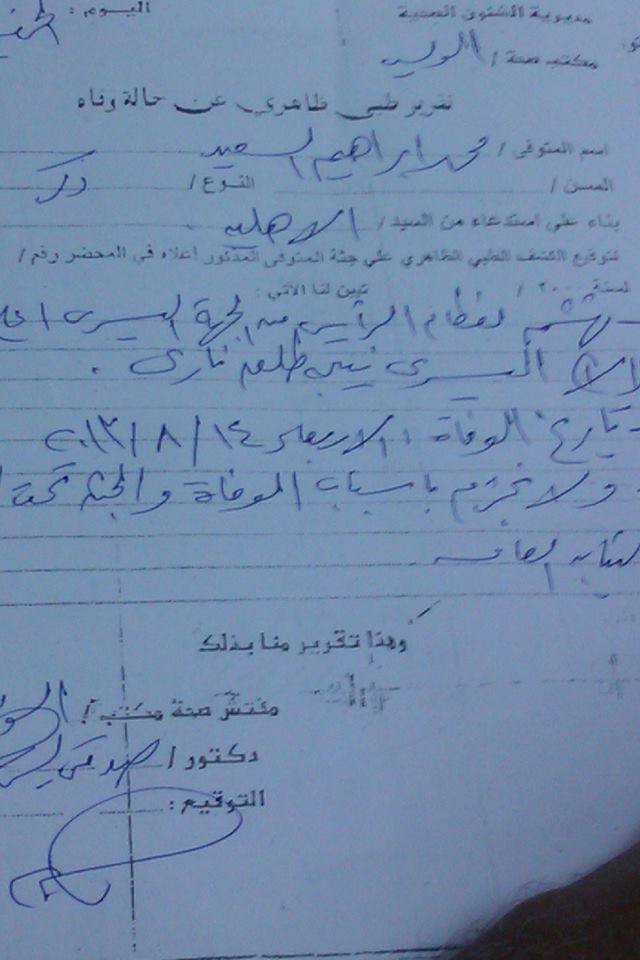 مديرية الشئون الصحية
اليوم :
مكتب صحة /
تقرير طبي ظاهري عن حالة وفاه
اسم المتوفى / محمد ابراهيم السعيد
السن / النوع / ذكر
بناء على استدعاء من السيد / الاهلية
لتوقيع الكشف الطبي الظاهري على جثة المتوفى المذكور أعلاه في المحضر رقم /
لسنة ٢٠٠ / تبين لنا الأتي :
- تهشم لعظام الرأس من الجهة اليسرى
اليسرى نتيجة طلق نارى .
- تاريخ الوفاة : الاربعاء ١٤ / ٨ / ٢٠١٣
ولا نجزم باسباب الوفاة والجثة تحت
النيابة العامة
وهذا تقرير منا بذلك
مفتش صحة مكتب /
دكتور /
التوقيع :